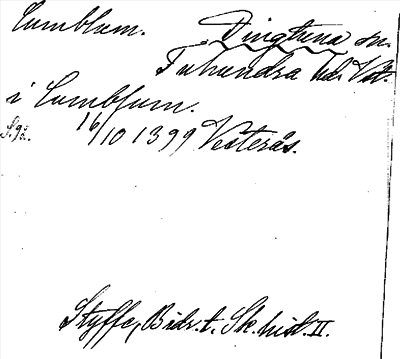 Lumblum. Dingtuna sn.
Tuhundra hd. Vstm.
i Lumbfum.
S. 92. 16/10 1399 Västerås.
Styffe, Bidr. t. Sk. hist. II.